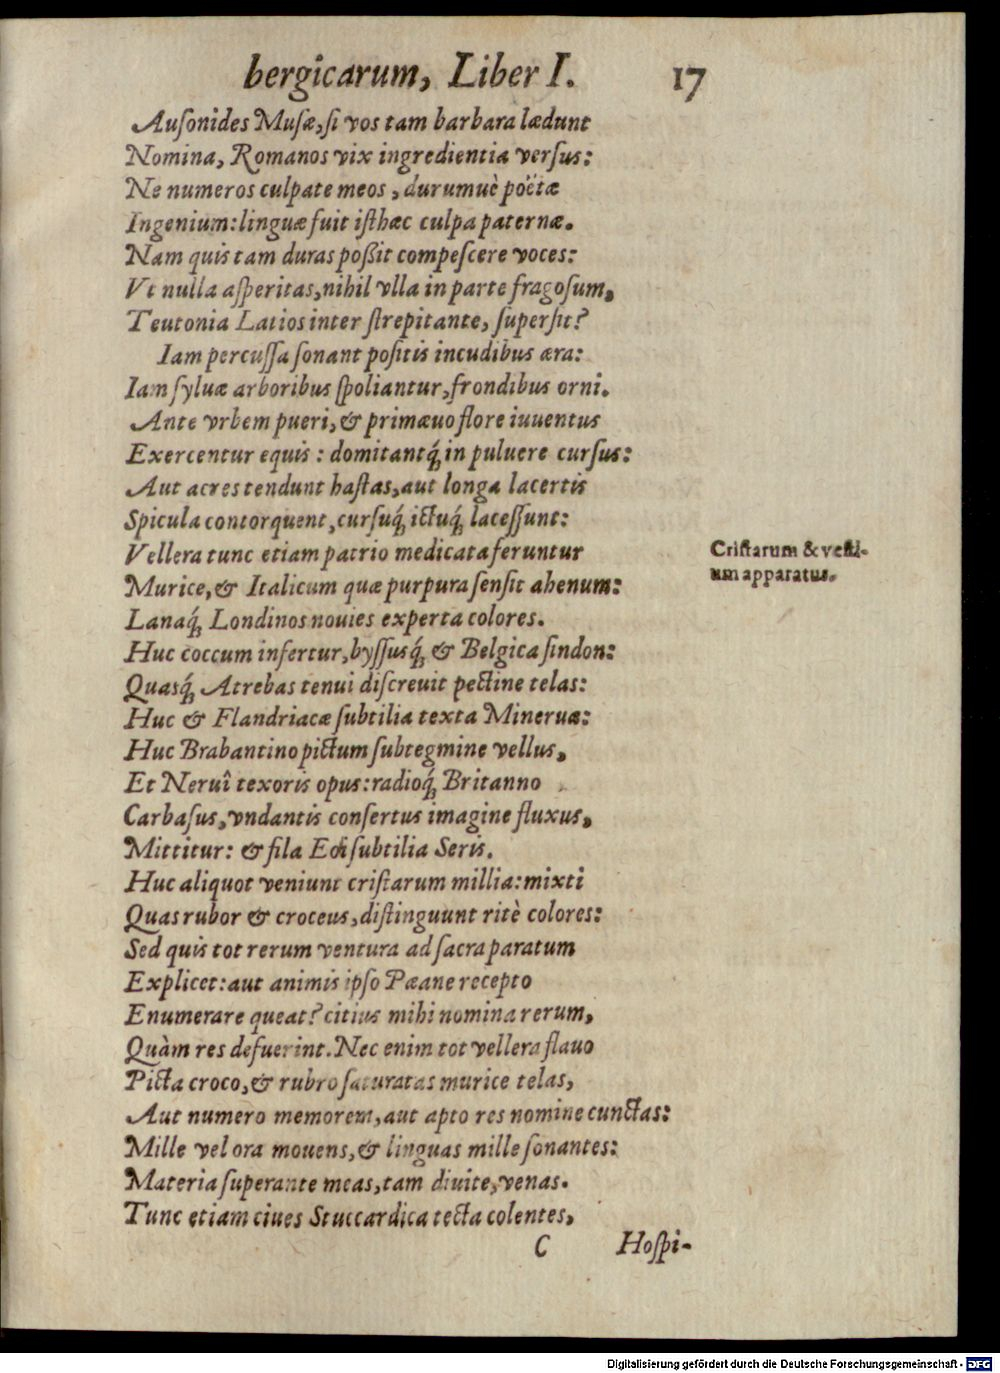 bergicarum, Liber I. 17
Auſonides Muſæ, ſi vos tam barbara lædunt
Nomina, Romanos vix ingredientia verſus:
Ne numeros culpate meos, durumuè poëtæ
Ingenium: linguæ fuit iſthæc culpa paternæ.
Nam quis tam duras poßit compeſcere voces:
Vt nulla aſperitas, nihil vlla in parte fragoſum,
Teutonia Latios inter ſtrepitante, ſuperſit?
Iam percuſſa ſonant poſitis incudibus æra:
Iam ſyluæ arboribus ſpoliantur, frondibus orni.
Ante vrbem pueri, & primæuo flore iuuentus
Exercentur equis: domitantq́; in puluere curſus:
Aut acres tendunt haſtas, aut longa lacertis
Spicula contorquent, curſuq́; ictuq́; laceſſunt:
Vellera tunc etiam patrio medicata feruntur
Criſtarum & veſti-
Murice, & Italicum quæ purpura ſenſit ahenum:
um apparatus.
Lanaq́; Londinos nouies experta colores.
Huc coccum infertur, byſſusq́; & Belgica ſindon:
Quasq́; Atrebas tenui diſcreuit pectine telas:
Huc & Flandriacæ ſubtilia texta Mineruæ:
Huc Brabantino pictum ſubtegmine vellus,
Et Neruî texoris opus: radioq́; Britanno
Carbaſus, vndantis conſertus imagine fluxus,
Mittitur: & fila Eoi ſubtilia Seris.
Huc aliquot veniunt criſtarum millia: mixti
Quas rubor & croceus, diſtinguunt ritè colores:
Sed quis tot rerum ventura ad ſacra paratum
Explicet: aut animis ipſo Pæane recepto
Enumerare queat? citius mihi nomina rerum,
Quàm res defuerint. Nec enim tot vellera flauo
Picta croco, & rubro ſaturatas murice telas,
Aut numero memorem, aut apto res nomine cunctas:
Mille vel ora mouens, & linguas mille ſonantes:
Materia ſuperante meas, tam diuite, venas.
Tunc etiam ciues Stuccardica tecta colentes,
C Hoſpi-
Digitalisierung gefördert durch die Deutsche Forschungsgemeinschaft - DFG